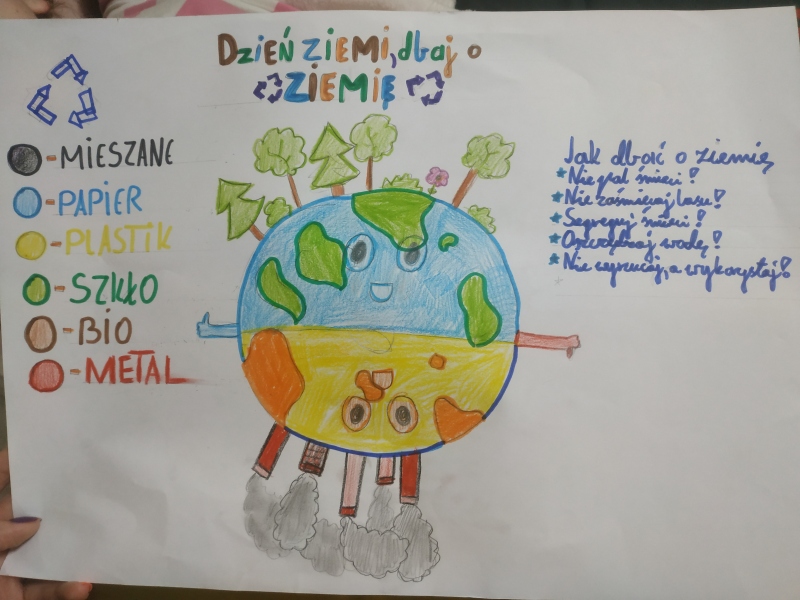 DZIEŃ ZIEMI, dbaj o
ZIEMIĘ
- MIESZANE
- PAPIER
- PLASTIK
- SZKŁO
- BIO
- METAL
Jak dbać o ziemię
* Nie pal śmieci!
* Nie zaśmiecaj lasu!
* Segreguj śmieci!
* Oszczędzaj wodę!
* Nie wyrzucaj, a wykorzystaj!